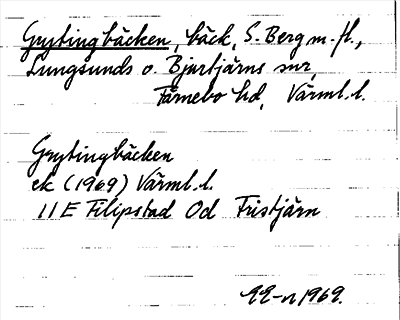 Grytingbäcken, bäck, S. Berg m. fl.,
Lungsunds o. Bjurtjärns snr,
Färnebo hd, Värml. l.
Grytingbäcken
ek (1969) Värml. l.
11E Filipstad 0d Tristjärn
1969.